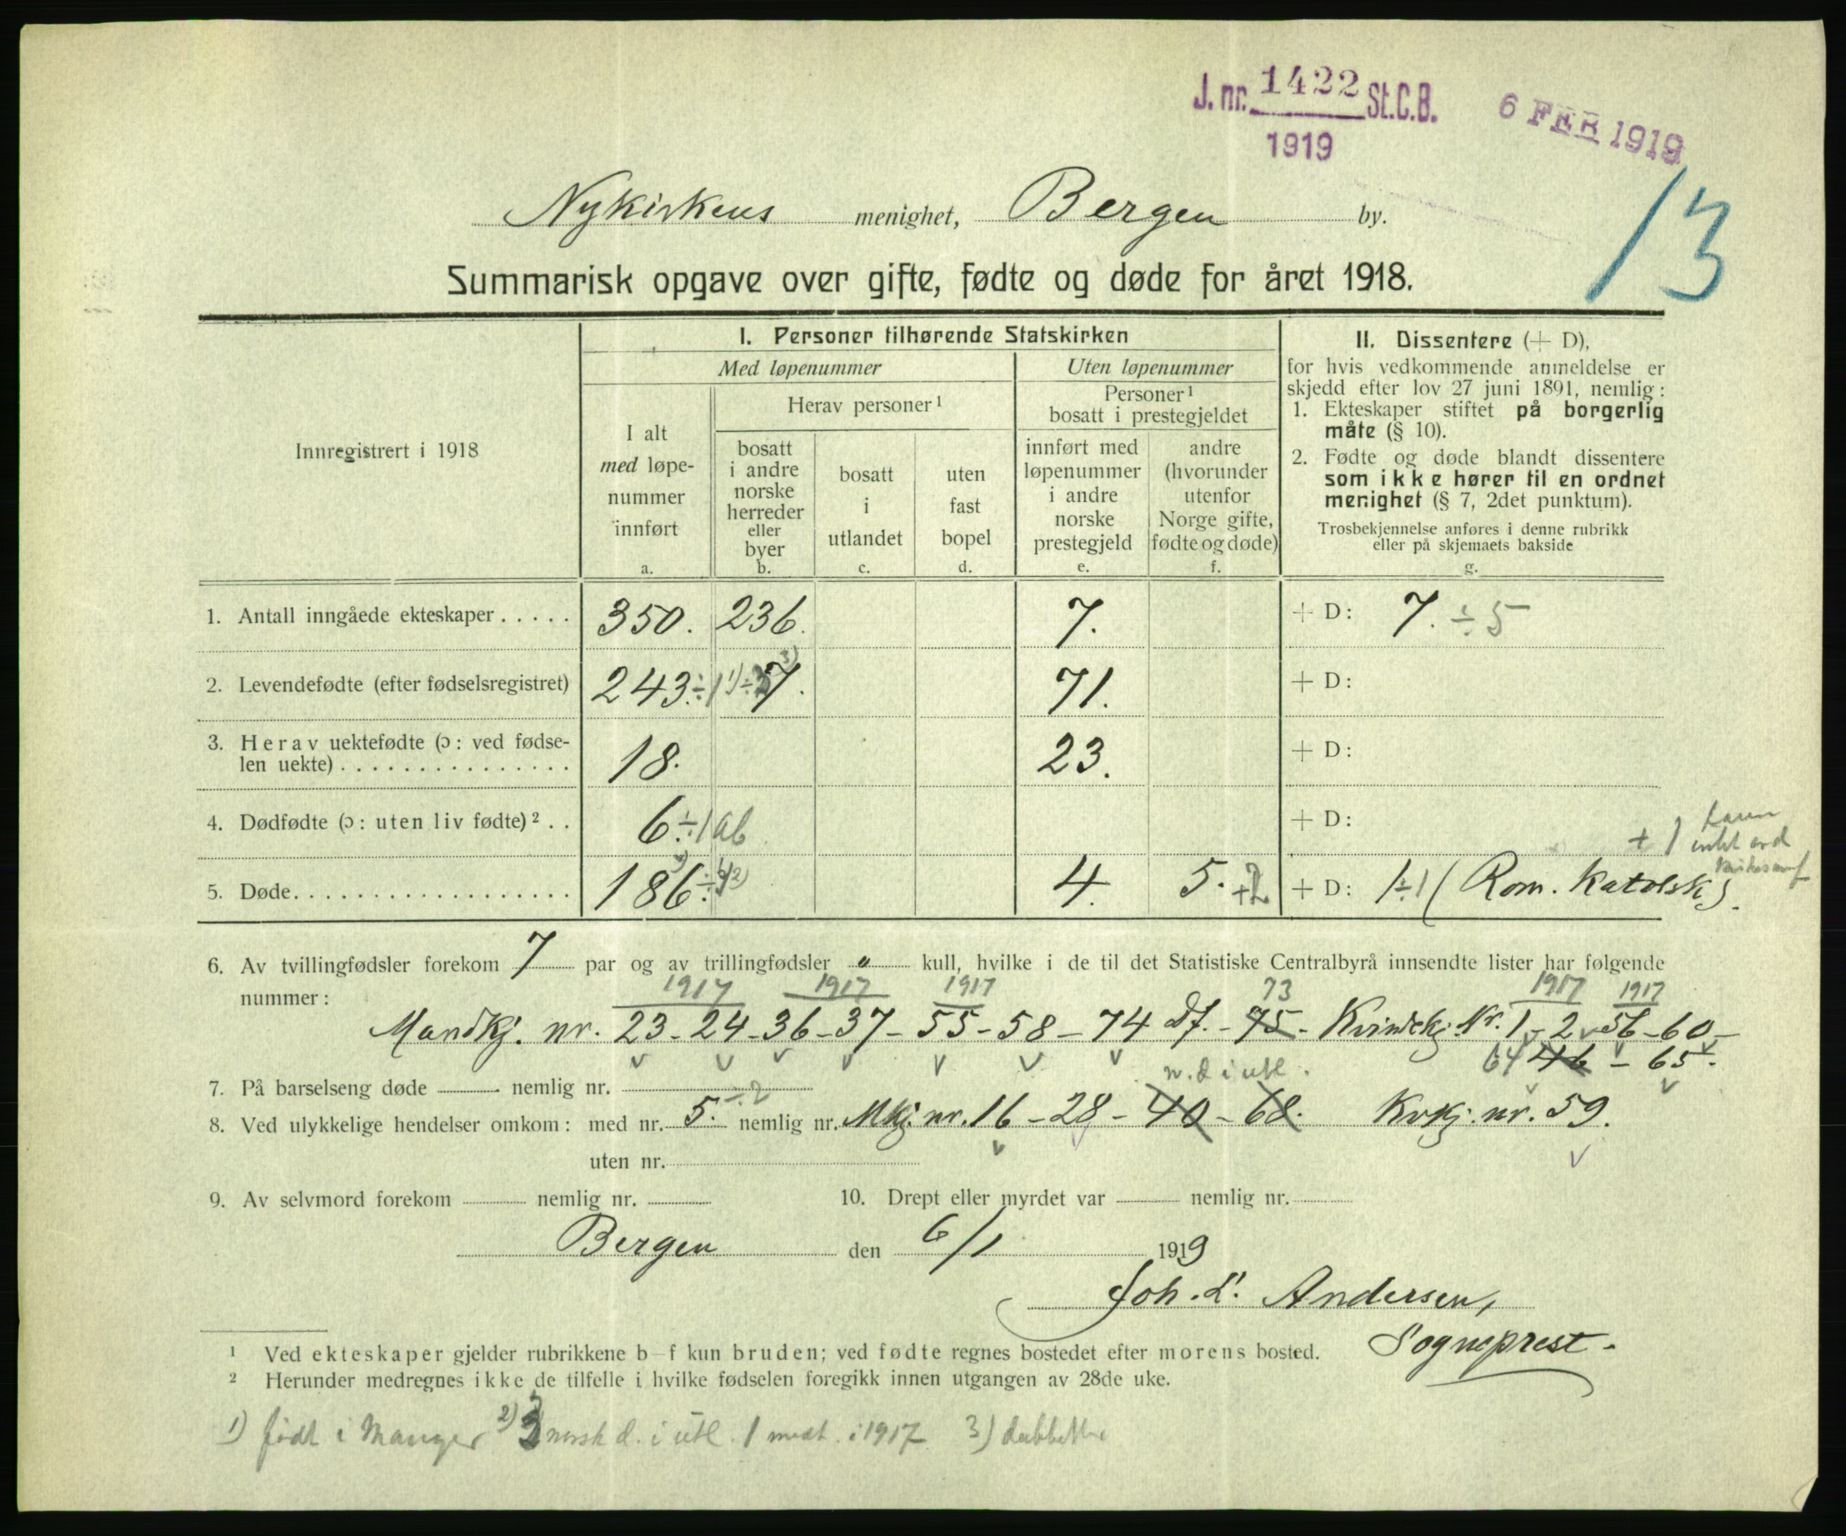 J. nr. 1422 St.C.B.
1919
6 FEB 1919
13
Nykirkens menighet, Bergen by.
Summarisk opgave over gifte, fødte og døde for året 1918.
Innregistrert i 1918
I. Personer tilhørende Statskirken
Med løpenummer
Uten løpenummer
I alt med løpenummer innført
a.
Herav personer¹
bosatt i andre norske herreder eller byer
b.
bosatt i utlandet
c.
uten fast bopel
d.
Personer¹ bosatt i prestegjeldet
innført med løpenummer i andre norske prestegjeld
e.
andre (hvorunder utenfor Norge gifte, fødte og døde)
f.
II. Dissentere (+ D),
for hvis vedkommende anmeldelse er
skjedd efter lov 27 juni 1891, nemlig:
1. Ekteskaper stiftet på borgerlig
måte (§ 10).
2. Fødte og døde blandt dissentere
som ikke hører til en ordnet
menighet (§ 7, 2det punktum).
Trosbekjennelse anføres i denne rubrikk
eller på skjemaets bakside
g.
1. Antall inngåede ekteskaper ..... 350. 236. 7. + D: 7. ÷ 5
2. Levendefødte (efter fødselsregistret) 243. ÷1 1) 7. 3) 71. + D:
3. Herav uektefødte (ɔ: ved fødse-
len uekte) ............... 18. 23. + D:
4. Dødfødte (ɔ: uten liv fødte)² .. 6 ÷1 ab + D:
5. Døde .................. 186. 2) 4. 5. +2 + D: 1 ÷1 (Rom. Katolsk). + 1
6. Av tvillingfødsler forekom 7 par og av trillingfødsler " kull, hvilke i de til det Statistiske Centralbyrå innsendte lister har følgende
nummer:
1917 1917 1917 73 1917 1917
Mandkj. nr. 23 - 24 - 36 - 37 - 55 - 58 - 74 Df. - 75 - Kvindekj. Nr. 1 - 2 - 56 - 60 -
64 46 - 65.
7. På barselseng døde nemlig nr.
n. d i utl.
8. Ved ulykkelige hendelser omkom: med nr. 5. ÷2 nemlig nr. Mkj. nr. 16 - 28 - 40 - 68. Kvkj. nr. 59.
uten nr.
9. Av selvmord forekom nemlig nr. 10. Drept eller myrdet var nemlig nr.
Bergen den 6/1 1919
Joh. L. Andersen,
Sogneprest.
¹ Ved ekteskaper gjelder rubrikkene b–f kun bruden; ved fødte regnes bostedet efter morens bosted.
² Herunder medregnes ikke de tilfelle i hvilke fødselen foregikk innen utgangen av 28de uke.
1) født i Manger 2) 3 norsk d. i utl. 1 medt. i 1917 3)